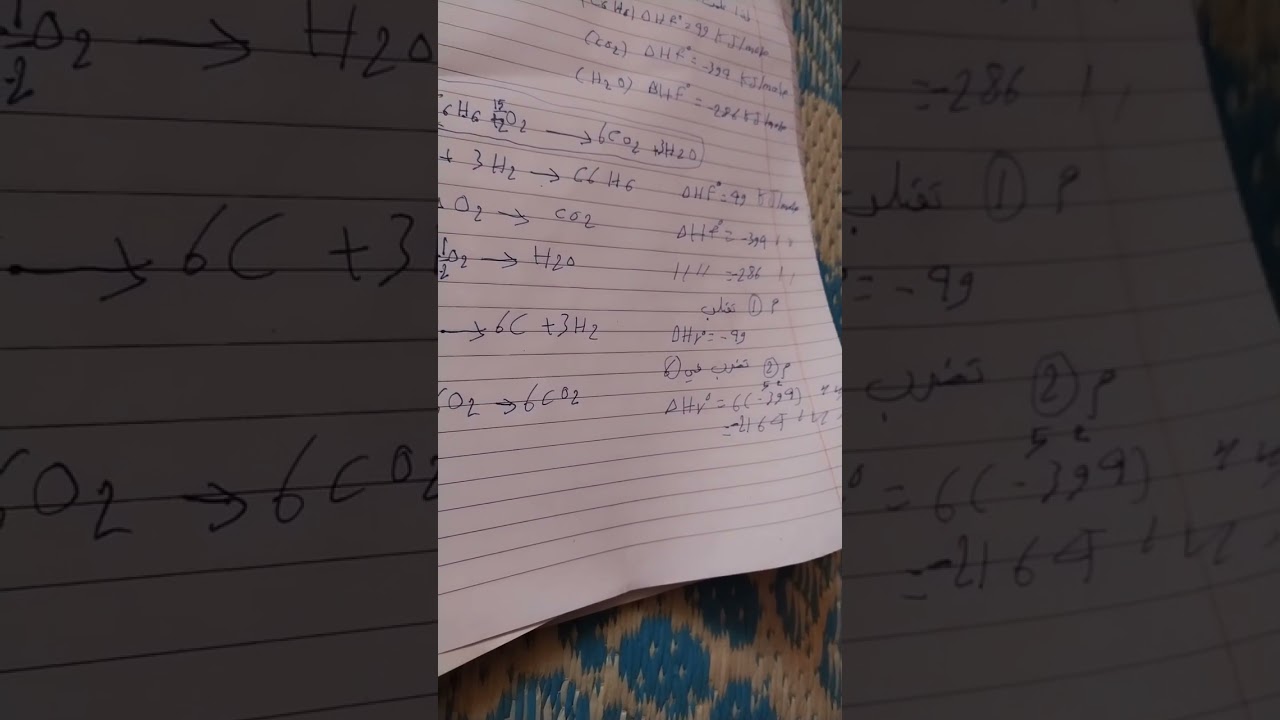 (C6H6) ΔHf° = 49 KJ/mole
(CO2) ΔHf° = -394 KJ/mole
(H2O) ΔHf° = -286 KJ/mole
C6H6 15/2 O2 → 6CO2 + 3H2O
+ 3H2 → C6H6 ΔHf° = 49 KJ/mole
O2 → CO2 ΔHf° = -394 //
1/2 O2 → H2O // // = -286 //
م ① تقلب
→ 6C + 3H2 ΔHr° = -49
م ② تضرب في ⑥
6O2 → 6CO2 ΔHr° = 6(-394)